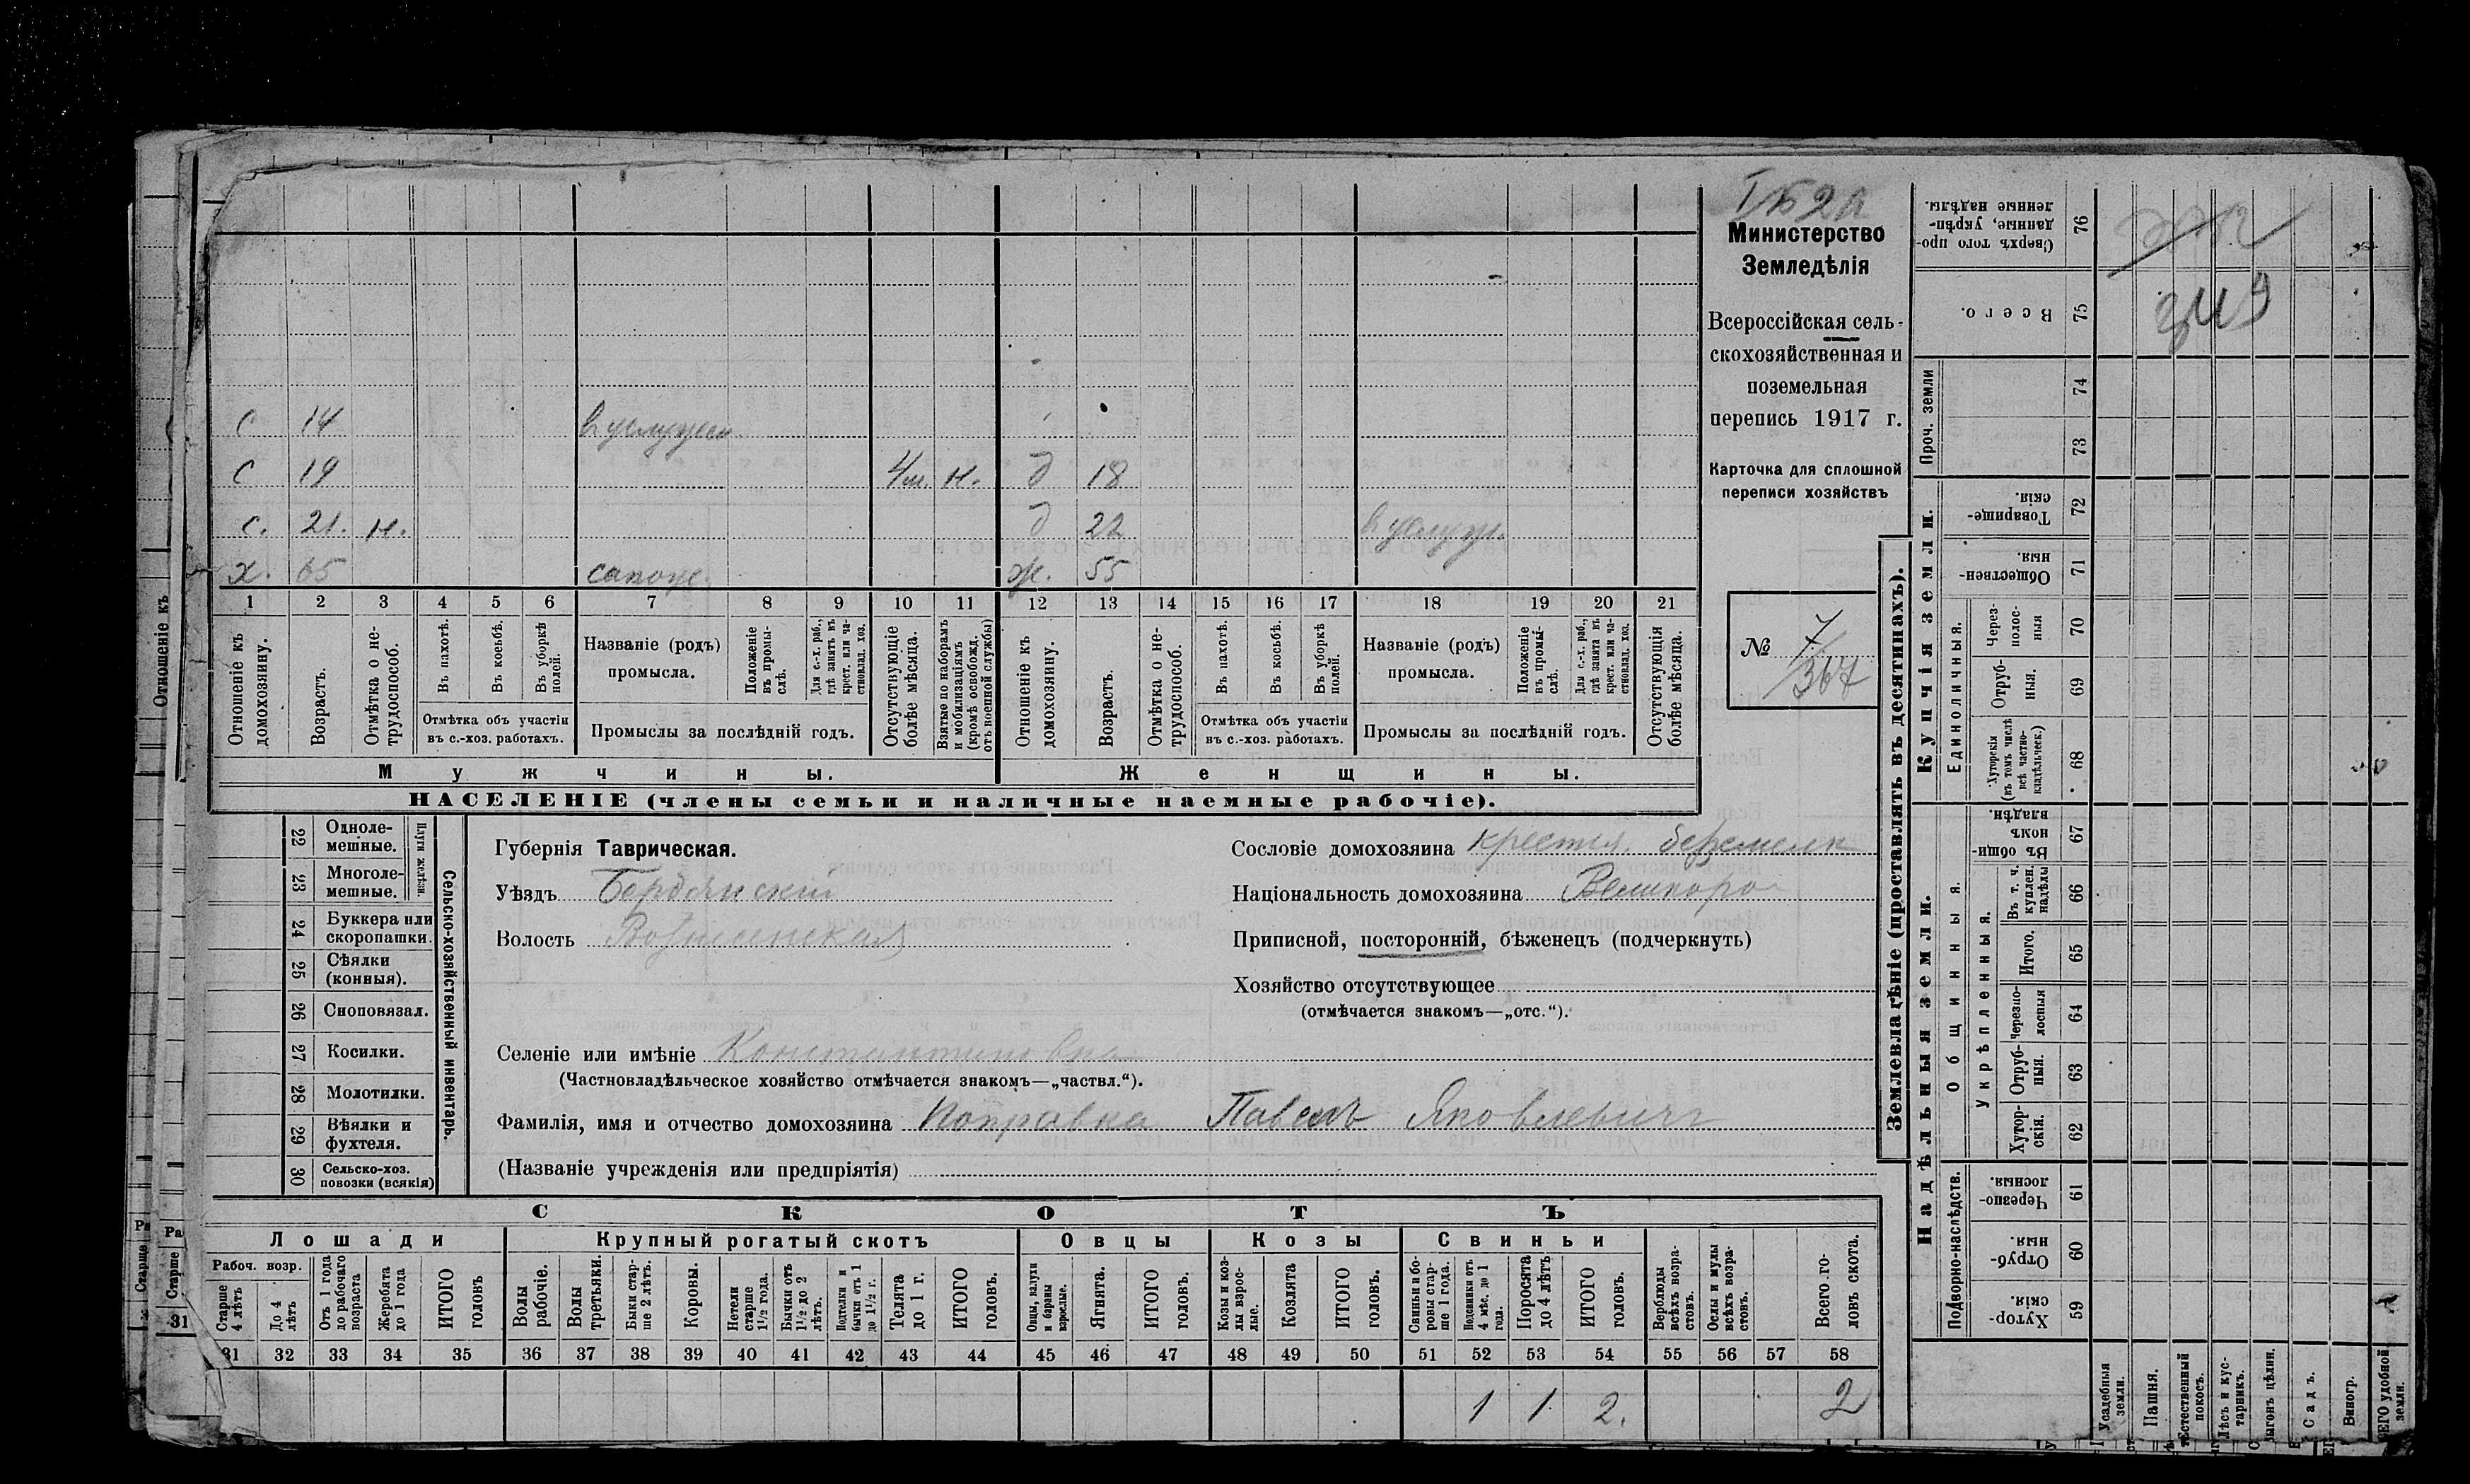 Министерство
Земледѣлія
Всероссійская сель-
скохозяйственная и
поземельная
перепись 1917 г.
Карточка для сплошной
переписи хозяйствъ
№ 7/367
с 14
с 19 4 м. н. д 18
с. 21. н. д 22
х. 65 сапож. ж. 55
1 2 3 4 5 6 7 8 9 10 11 12 13 14 15 16 17 18 19 20 21
Отношеніе къ домохозяину.
Возрастъ.
Отмѣтка о не-
трудоспособ.
Въ пахотѣ.
Въ косьбѣ.
Въ уборкѣ полей.
Отмѣтка объ участіи
въ с.-хоз. работахъ.
Названіе (родъ)
промысла.
Положеніе въ промы-
слѣ.
Для с.-х. раб., гдѣ занятъ въ крест. или ча-
стновлад. хоз.
Промыслы за послѣдній годъ.
Отсутствующіе болѣе мѣсяца.
Взятые по наборамъ и мобилизаціямъ (кромѣ освобожд. отъ военной службы)
Отношеніе къ домохозяину.
Возрастъ.
Отмѣтка о не-
трудоспособ.
Въ пахотѣ.
Въ косьбѣ.
Въ уборкѣ полей.
Отмѣтка объ участіи
въ с.-хоз. работахъ.
Названіе (родъ)
промысла.
Положеніе въ промы-
слѣ.
Для с.-х. раб., гдѣ занята въ крест. или ча-
стновлад. хоз.
Промыслы за послѣдній годъ.
Отсутствующія болѣе мѣсяца.
Мужчины. Женщины.
НАСЕЛЕНІЕ (члены семьи и наличные наемные рабочіе).
22 Одноле-
мешные.
23 Многоле-
мешные.
Плуги желѣзн.
24 Буккера или
скоропашки.
25 Сѣялки
(конныя).
26 Сноповязал.
27 Косилки.
28 Молотилки.
29 Вѣялки и
фухтеля.
30 Сельско-хоз.
повозки (всякія)
Сельско-хозяйственный инвентарь.
Губернія Таврическая.
Уѣздъ Бердянскій
Волость Вознесенская
Селеніе или имѣніе Константиновка
(Частновладѣльческое хозяйство отмѣчается знакомъ—„частвл.“).
Фамилія, имя и отчество домохозяина Поправка Павелъ Яковлевич
(Названіе учрежденія или предпріятія)
Сословіе домохозяина крестья.
Національность домохозяина Великоро
Приписной, посторонній, бѣженецъ (подчеркнуть)
Хозяйство отсутствующее
(отмѣчается знакомъ—„отс.“).
СКОТЪ
Лошади Крупный рогатый скотъ Овцы Козы Свиньи
Рабоч. возр.
Старше 4 лѣтъ
До 4 лѣтъ
Отъ 1 года до рабочаго возраста
Жеребята до 1 года
ИТОГО головъ
Волы рабочіе.
Волы третьяки.
Быки стар-
ше 2 лѣтъ.
Коровы.
Нетели старше 1½ года.
Бычки отъ 1½ до 2 лѣтъ.
Подтелки и бычки отъ 1 до 1½ г.
Телята до 1 г.
ИТОГО головъ.
Овцы, валухи и бараны взрослые.
Ягнята.
ИТОГО головъ.
Козы и коз-
лы взрос-
лые.
Козлята
ИТОГО головъ.
Свиньи и бо-
ровы стар-
ше 1 года.
Подсвинки отъ 4 мѣс. до 1 года.
Поросята до 4 лѣтъ
ИТОГО головъ.
Верблюды всѣхъ возра-
стовъ.
Ослы и мулы всѣхъ возра-
стовъ.
Всего го-
ловъ скота.
31 32 33 34 35 36 37 38 39 40 41 42 43 44 45 46 47 48 49 50 51 52 53 54 55 56 57 58
1 1 2. 2
Землевладѣніе (проставлять въ десятинахъ).
Надѣльныя земли. Купчія земли. Проч. земли
Подворно-наслѣдств.
Общинныя.
Укрѣпленныя.
Единоличныя.
Сверхъ того про-
данные, укрѣп-
ленные надѣлы. 76
Всего. 75
74
73
Товарище-
скія. 72
Обществен-
ныя 71
Через-
полос-
ныя 70
Отруб-
ныя. 69
Хуторскія
(въ томъ числѣ
всѣ частно-
владѣльческ.) 68
Въ общин-
номъ
владѣн. 67
Въ т. ч.
куплен.
надѣлы 66
Итого. 65
Черезпо-
лосныя 64
Отруб-
ныя. 63
Хутор-
скія. 62
Черезпо-
лосныя. 61
Отруб-
ныя. 60
Хутор-
скія. 59
Усадебныя земли.
Пашня.
Естественный покосъ.
Лѣсъ и кус-
тарникъ.
Выгонъ цѣлин.
Садъ.
Виногр.
удобной земли.
Отношеніе къ
Старше
Старше
31